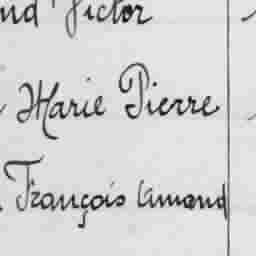 nd Victor
Marie Pierre
François Amand